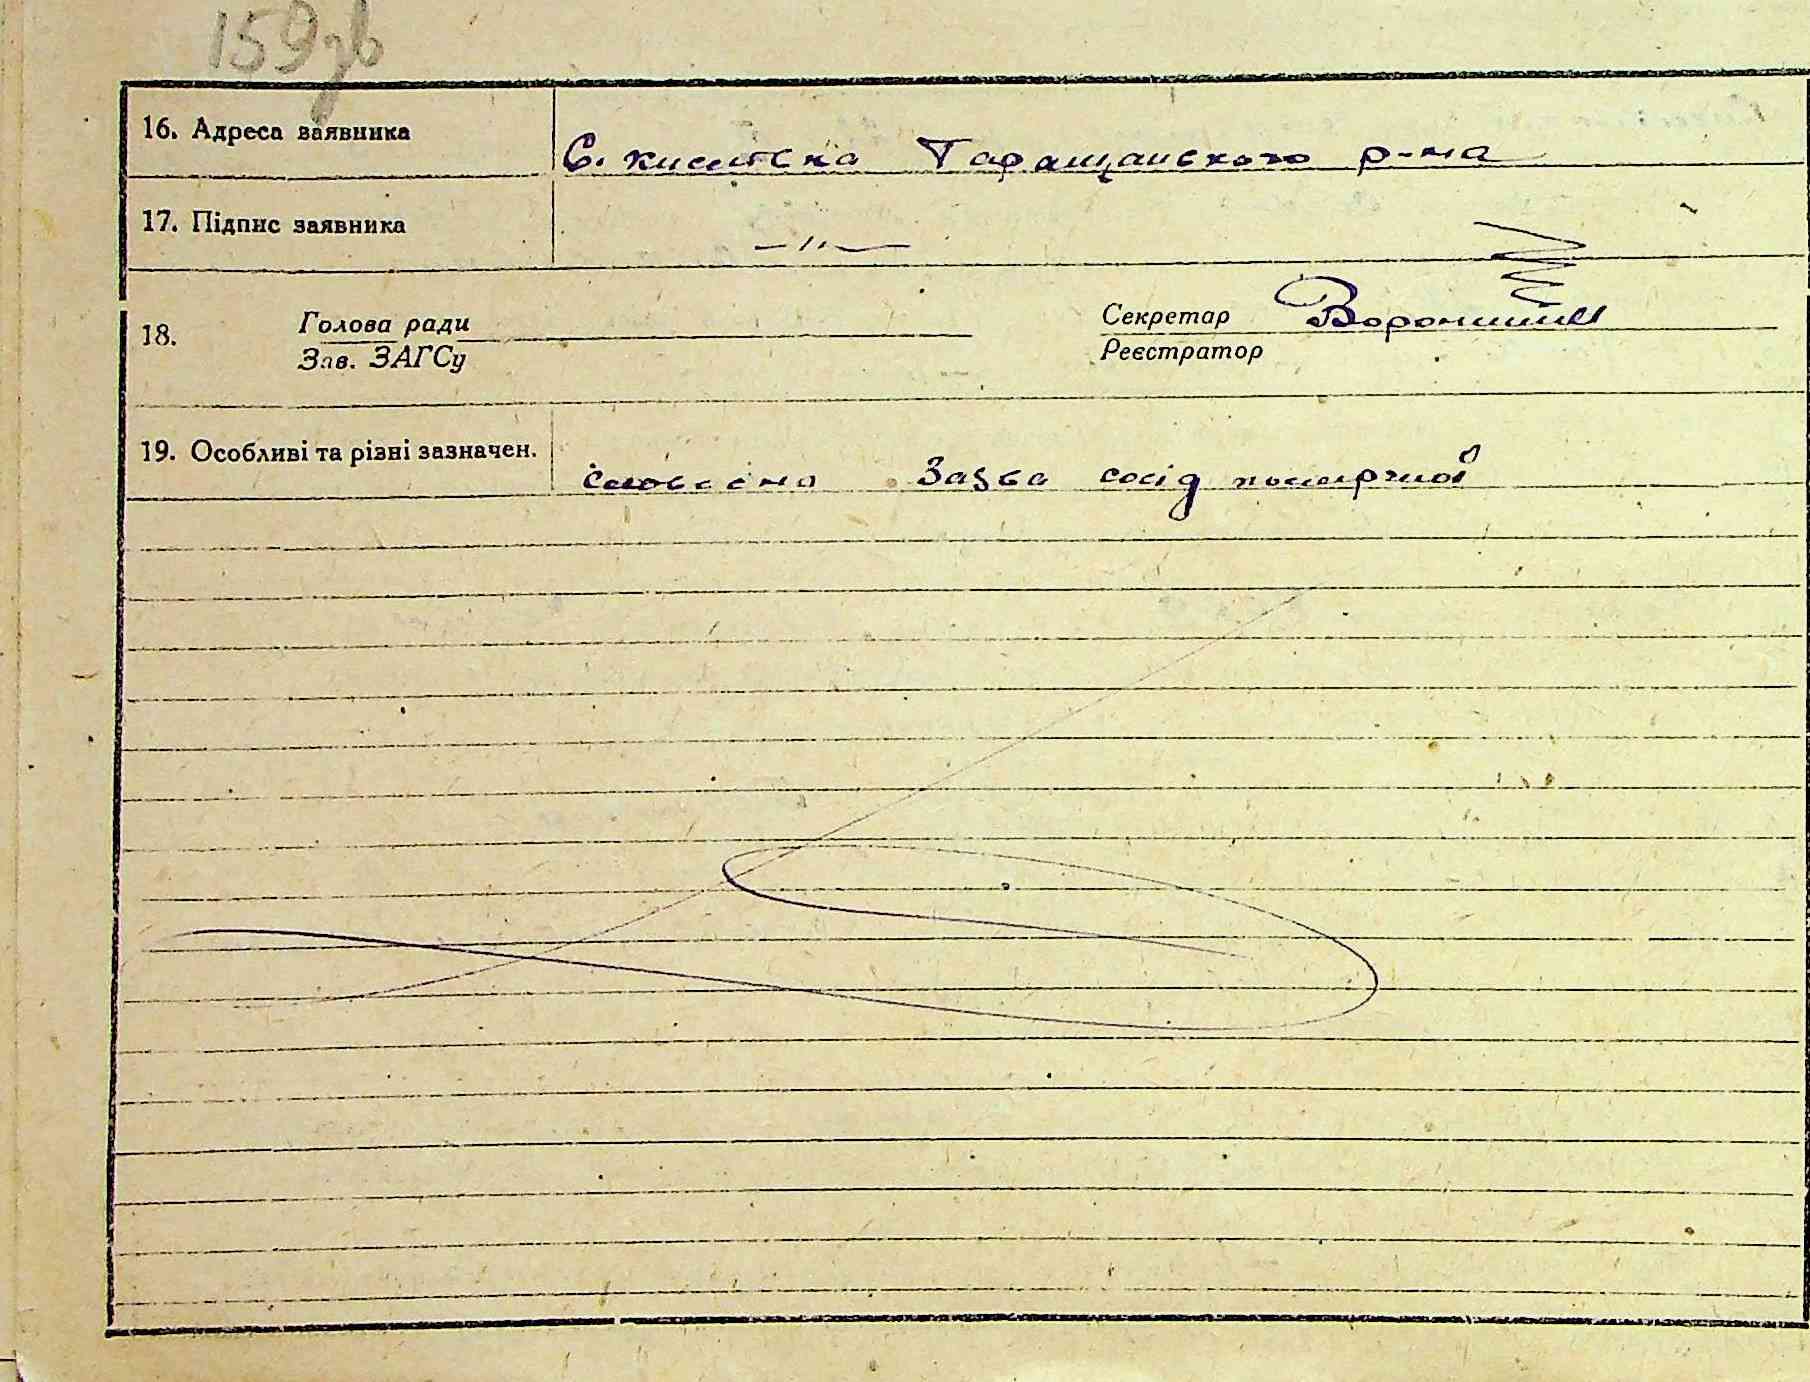 159зв
16. Адреса заявника С. Кислівка Таращанського р-на
17. Підпис заявника —"—
18. Голова ради Секретар
Зав. ЗАГСу Реєстратор
19. Особливі та різні зазначен. Словесна Заява сосід помершої